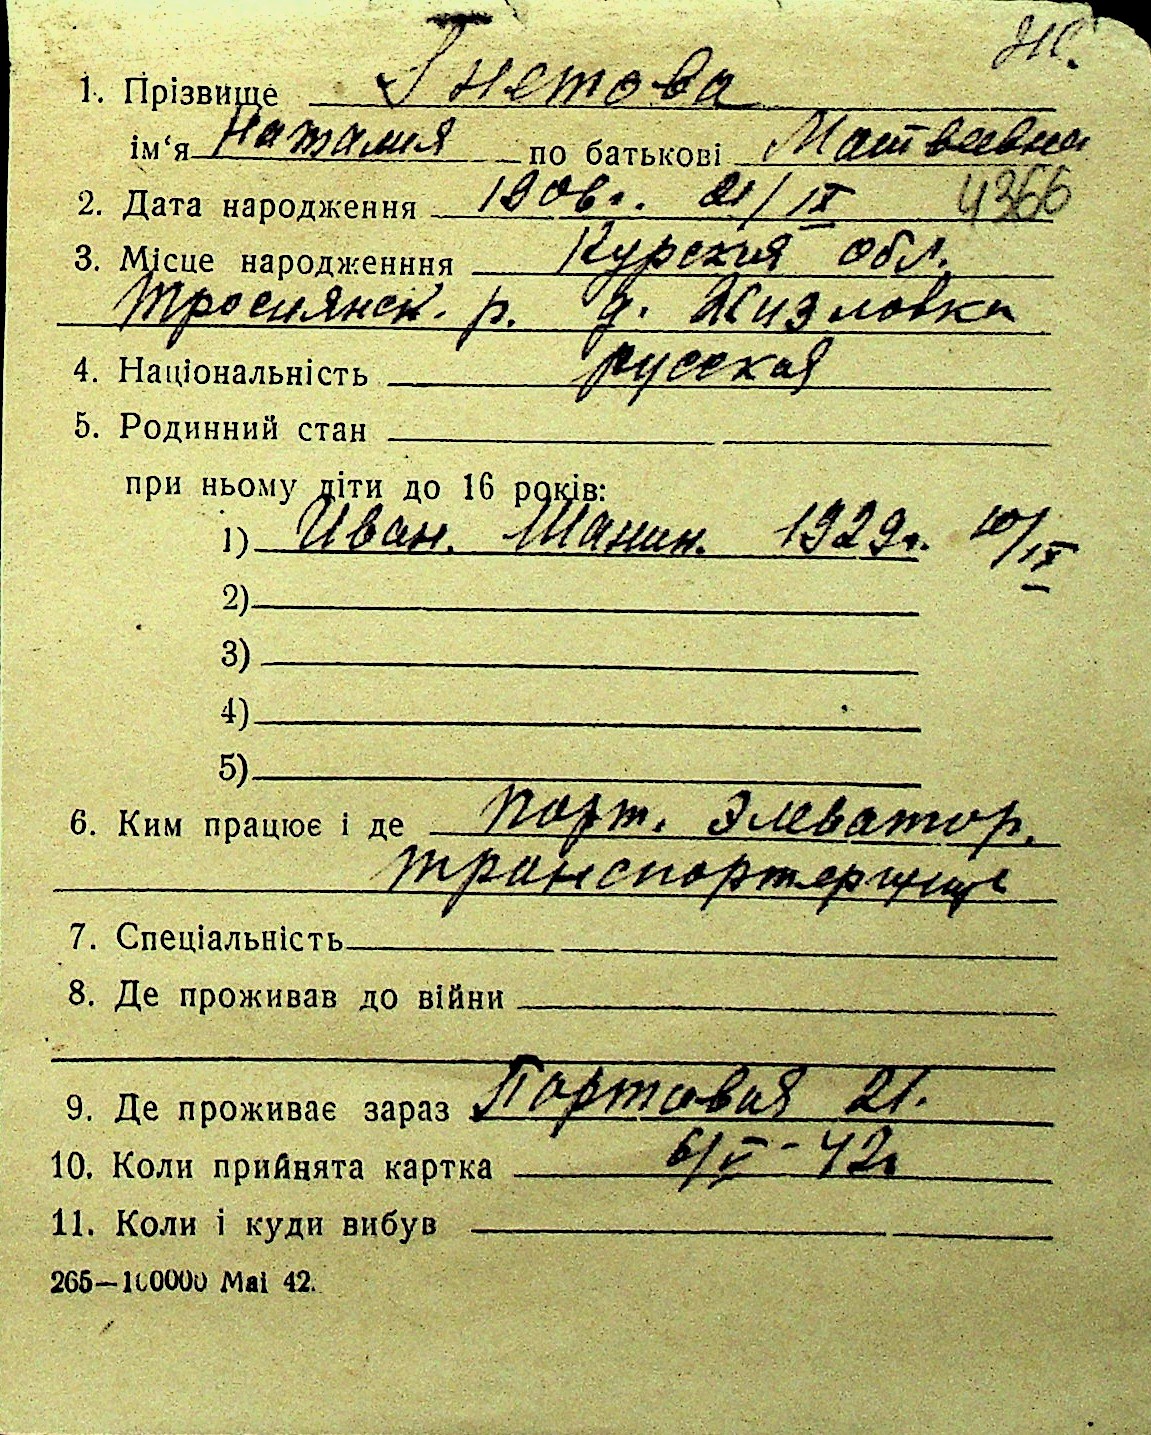 1. Прізвище Гнетова
ім‘я Наталия по батькові Матвеевна
2. Дата народження 1906г. 21/IX 4366
3. Місце народженння Курския обл.
Троснянск. р. д. Жизловка
4. Національність русская
5. Родинний стан
при ньому діти до 16 років:
1) Иван. Шанин. 1929г. 10/IX
2)
3)
4)
5)
6. Ким працює і де порт. Элеватор.
транспортерщица
7. Спеціальність
8. Де проживав до війни
9. Де проживає зараз Портовая 21.
10. Коли прийнята картка 6/V-42г
11. Коли і куди вибув
265—100000 Mai 42.